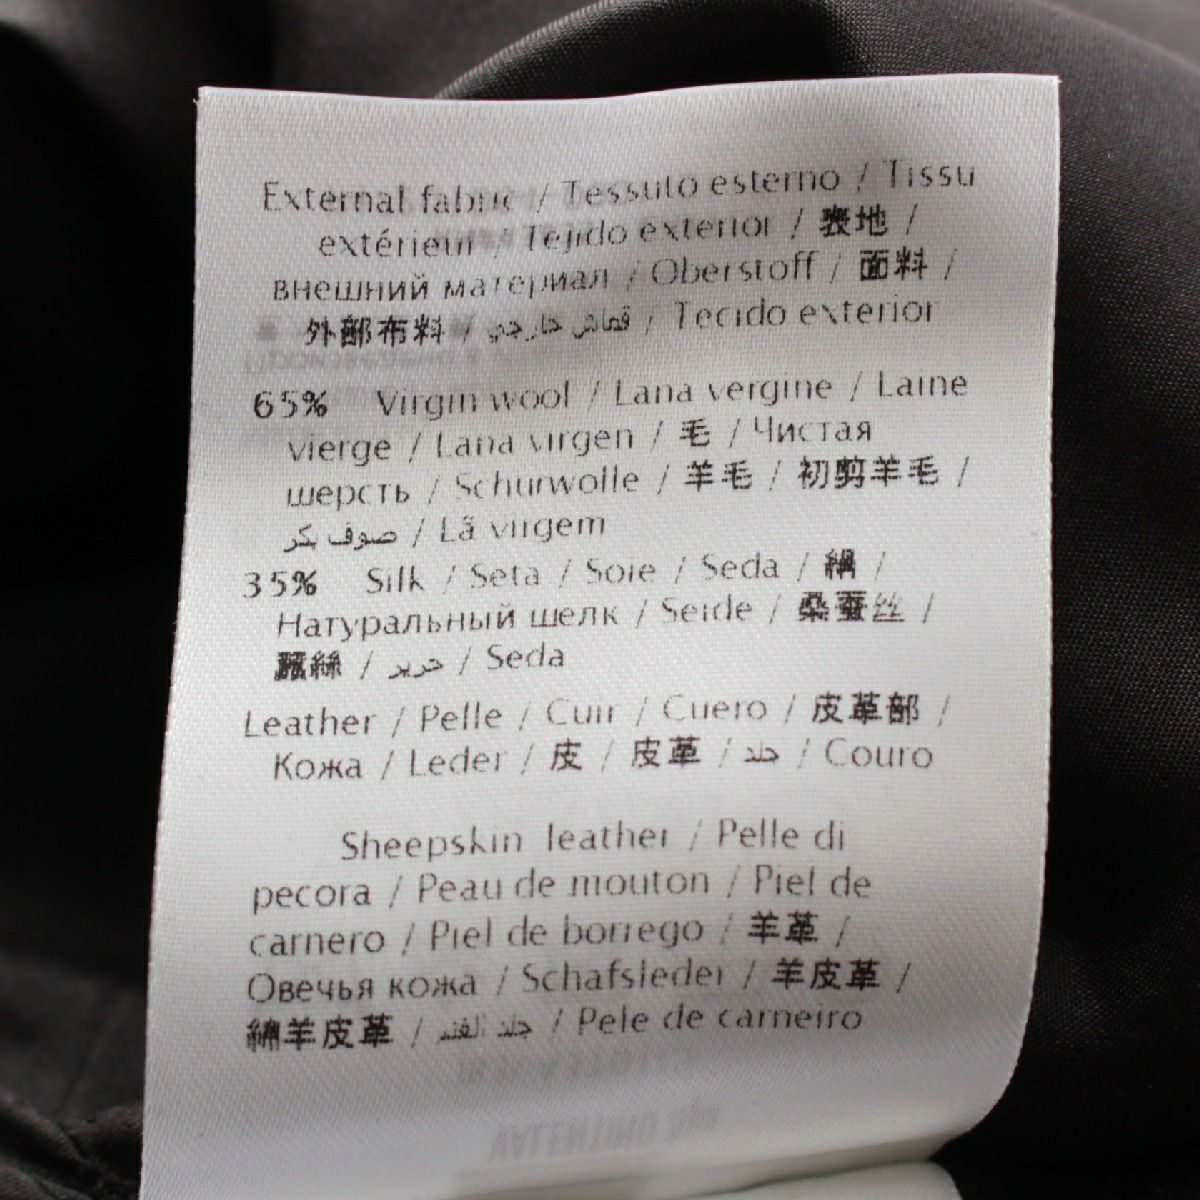 External fabric / Tessuto esterno / Tissu
extérieur / Tejido exterior / 表地 /
внешний материал / Oberstoff / 面料 /
外部布料 / قماش خارجي / Tecido exterior
65% Virgin wool / Lana vergine / Laine
vierge / Lana virgen / 毛 / Чистая
шерсть / Schurwolle / 羊毛 / 初剪羊毛 /
صوف بكر / Lã virgem
35% Silk / Seta / Soie / Seda / 絹 /
Натуральный шелк / Seide / 桑蚕丝 /
蠶絲 / حرير / Seda
Leather / Pelle / Cuir / Cuero / 皮革部 /
Кожа / Leder / 皮 / 皮革 / جلد / Couro
Sheepskin leather / Pelle di
pecora / Peau de mouton / Piel de
carnero / Piel de borrego / 羊革 /
Овечья кожа / Schafsleder / 羊皮革 /
綿羊皮革 / جلد الغنم / Pele de carneiro